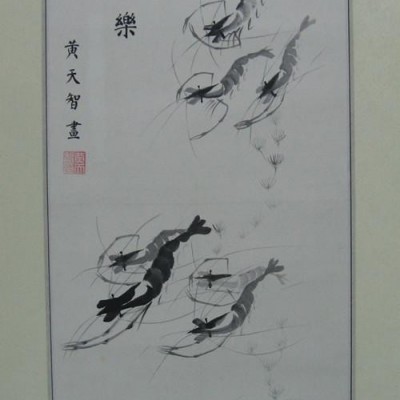 樂
黃天智畫